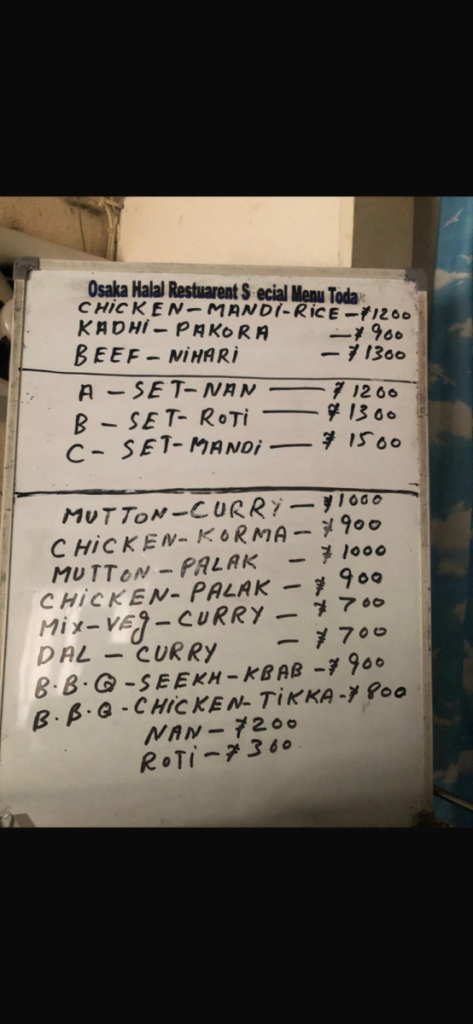 Osaka Halal Restuarent S ecial Menu Toda
CHiCKEN-MANDi-RiCE-¥1200
KADHi-PAKORA -¥900
BEEF-NiHARi -¥1300
A-SET-NAN-¥1200
B-SET-ROTi-¥1300
C-SET-MANDi-¥1500
MUTTON-CURRY-¥1000
CHiCKEN-KORMA-¥900
MUTTON-PALAK -¥1000
CHiCKEN-PALAK-¥900
Mix-VEg-CURRY-¥700
DAL-CURRY -¥700
B.B.Q-SEEKH-KBAB-¥900
B.B.Q-CHiCKEN-TiKKA-¥800
NAN-¥200
ROTi-¥300